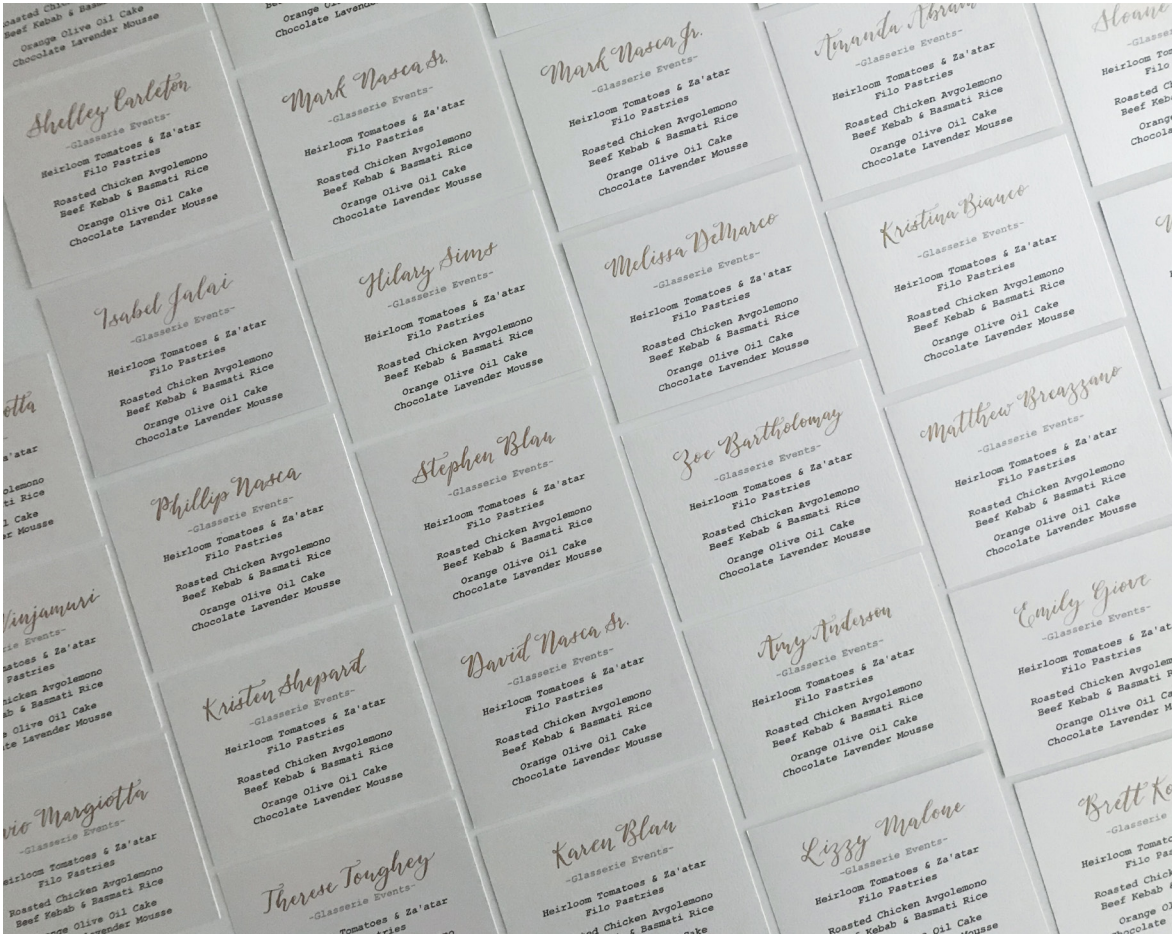 Roasted Chicken
Beef Kebab & Basmati Rice
Orange Olive Oil Cake
Chocolate Lavender Mousse
Shelley Carleton
~Glasserie Events~
Heirloom Tomatoes & Za'atar
Filo Pastries
Roasted Chicken Avgolemono
Beef Kebab & Basmati Rice
Orange Olive Oil Cake
Chocolate Lavender Mousse
Isabel Jalai
~Glasserie Events~
Heirloom Tomatoes & Za'atar
Filo Pastries
Roasted Chicken Avgolemono
Beef Kebab & Basmati Rice
Orange Olive Oil Cake
Chocolate Lavender Mousse
Phillip Nasca
~Glasserie Events~
Heirloom Tomatoes & Za'atar
Filo Pastries
Roasted Chicken Avgolemono
Beef Kebab & Basmati Rice
Orange Olive Oil Cake
Chocolate Lavender Mousse
Kristen Shepard
~Glasserie Events~
Heirloom Tomatoes & Za'atar
Filo Pastries
Roasted Chicken Avgolemono
Beef Kebab & Basmati Rice
Orange Olive Oil Cake
Chocolate Lavender Mousse
Therese Toughey
~Glasserie Events~
Heirloom Tomatoes & Za'atar
Orange Olive Oil Cake
Chocolate Lavender Mousse
Mark Nasca Sr.
~Glasserie Events~
Heirloom Tomatoes & Za'atar
Filo Pastries
Roasted Chicken Avgolemono
Beef Kebab & Basmati Rice
Orange Olive Oil Cake
Chocolate Lavender Mousse
Hilary Sims
~Glasserie Events~
Heirloom Tomatoes & Za'atar
Filo Pastries
Roasted Chicken Avgolemono
Beef Kebab & Basmati Rice
Orange Olive Oil Cake
Chocolate Lavender Mousse
Stephen Blau
~Glasserie Events~
Heirloom Tomatoes & Za'atar
Filo Pastries
Roasted Chicken Avgolemono
Beef Kebab & Basmati Rice
Orange Olive Oil Cake
Chocolate Lavender Mousse
David Nasca Sr.
~Glasserie Events~
Heirloom Tomatoes & Za'atar
Filo Pastries
Roasted Chicken Avgolemono
Beef Kebab & Basmati Rice
Orange Olive Oil Cake
Chocolate Lavender Mousse
Karen Blau
~Glasserie Events~
Heirloom Tomatoes & Za'atar
Filo Pastries
Roasted Chicken Avgolemono
Mark Nasca Jr.
~Glasserie Events~
Heirloom Tomatoes & Za'atar
Filo Pastries
Roasted Chicken Avgolemono
Beef Kebab & Basmati Rice
Orange Olive Oil Cake
Chocolate Lavender Mousse
Melissa DeMarco
~Glasserie Events~
Heirloom Tomatoes & Za'atar
Filo Pastries
Roasted Chicken Avgolemono
Beef Kebab & Basmati Rice
Orange Olive Oil Cake
Chocolate Lavender Mousse
Zoe Bartholomay
~Glasserie Events~
Heirloom Tomatoes & Za'atar
Filo Pastries
Roasted Chicken Avgolemono
Beef Kebab & Basmati Rice
Orange Olive Oil Cake
Chocolate Lavender Mousse
Amy Anderson
~Glasserie Events~
Heirloom Tomatoes & Za'atar
Filo Pastries
Roasted Chicken Avgolemono
Beef Kebab & Basmati Rice
Orange Olive Oil Cake
Chocolate Lavender Mousse
Lizzy Malone
~Glasserie Events~
Heirloom Tomatoes & Za'atar
Filo Pastries
Roasted Chicken Avgolemono
Beef Kebab & Basmati Rice
Amanda Abram
~Glasserie Events~
Heirloom Tomatoes & Za'atar
Filo Pastries
Roasted Chicken Avgolemono
Beef Kebab & Basmati Rice
Orange Olive Oil Cake
Chocolate Lavender Mousse
Kristina Bianco
~Glasserie Events~
Heirloom Tomatoes & Za'atar
Filo Pastries
Roasted Chicken Avgolemono
Beef Kebab & Basmati Rice
Orange Olive Oil Cake
Chocolate Lavender Mousse
Matthew Breazzano
~Glasserie Events~
Heirloom Tomatoes & Za'atar
Filo Pastries
Roasted Chicken Avgolemono
Beef Kebab & Basmati Rice
Orange Olive Oil Cake
Chocolate Lavender Mousse
Emily Giove
~Glasserie Events~
Heirloom Tomatoes & Za'atar
Filo Pastries
Roasted Chicken Avgolemono
Beef Kebab & Basmati
Orange Olive Oil
Chocolate Lavender
Brett Ko
~Glasserie
Heirloom Tomatoes
Filo
Roasted Chicken
Sloane
Vinjamuri
Margiotta
~Glasserie Events~